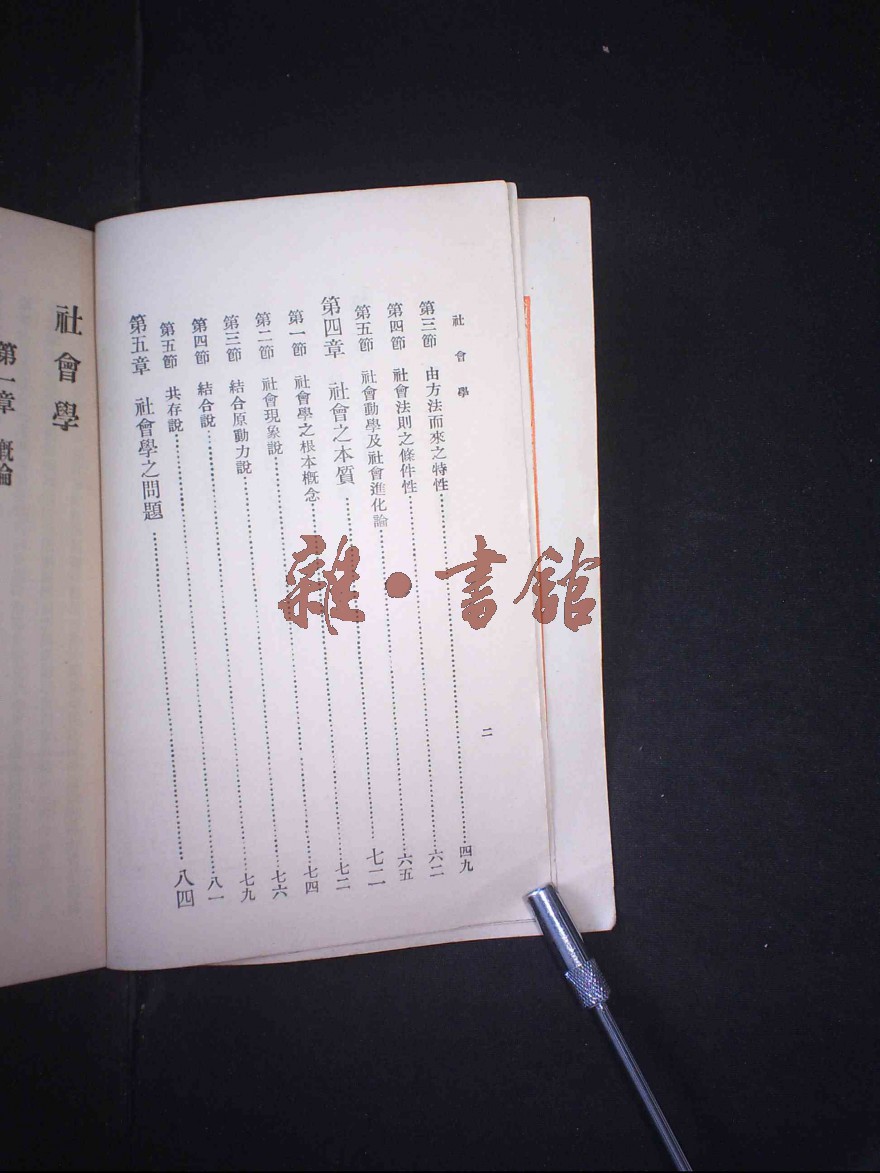 社會學
二
第三節 由方法而來之特性……四九
第四節 社會法則之條件性……六二
第五節 社會動學及社會進化論……六五
第四章 社會之本質……七二
第一節 社會學之根本概念……七二
第二節 社會現象說……七四
第三節 結合原動力說……七六
第四節 結合說……七九
第五節 共存說……八一
第五章 社會學之問題……八四
社會學
第一章 概論
雜·書館